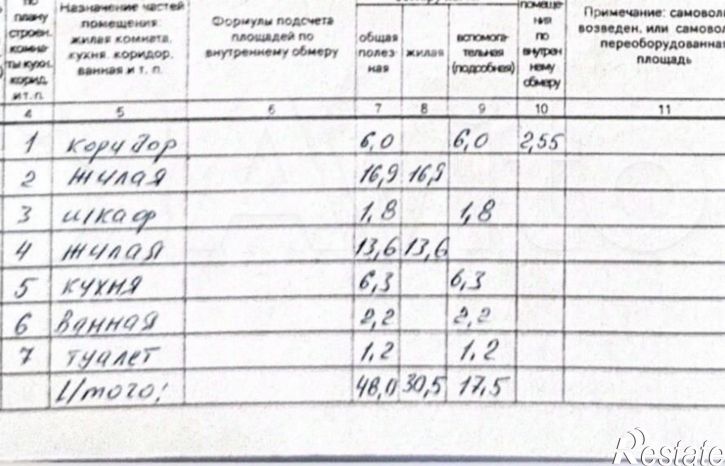 по плану строен. комнаты кухн. корид. и т. п.
Назначение частей помещения: жилая комната, кухня, коридор, ванная и т. п.
Формулы подсчета площадей по внутреннему обмеру
общая полезная
жилая
вспомогательная (подсобная)
помещения по внутреннему обмеру
Примечание: самовол
возведен. или самовол
переоборудованна
площадь
4 5 6 7 8 9 10 11
1 коридор 6,0 6,0 2,55
2 жилая 16,9 16,9
3 шкаф 1,8 1,8
4 жилая 13,6 13,6
5 кухня 6,3 6,3
6 ванная 2,2 2,2
7 туалет 1,2 1,2
Итого: 48,0 30,5 17,5
Restate